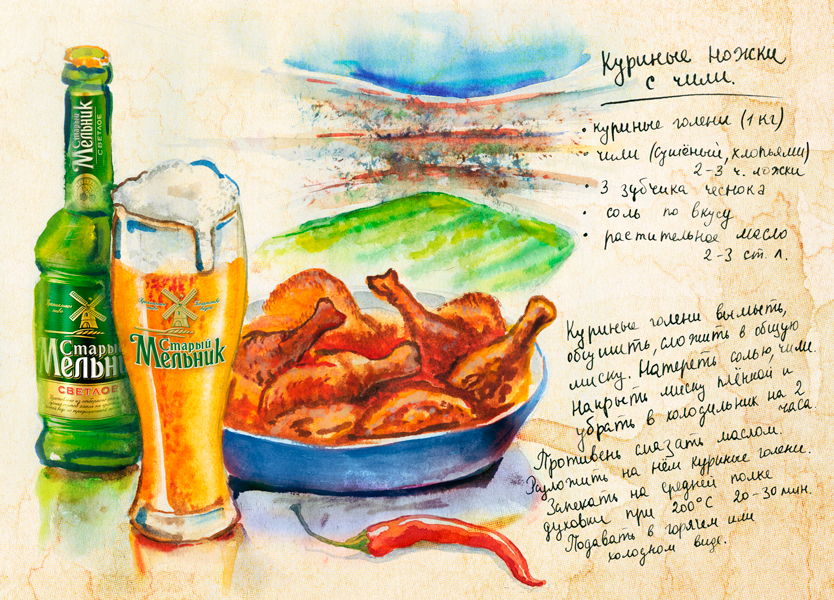 Старый
Мельник
СВЕТЛОЕ
Старый
Мельник
СВЕТЛОЕ
Старый
Мельник
Куриные ножки
с чили.
• куриные голени (1 кг)
• чили (сушёный, хлопьями)
2-3 ч. ложки
• 3 зубчика чеснока
• соль по вкусу
• растительное масло
2-3 ст. л.
Куриные голени вымыть,
обсушить, сложить в общую
миску. Натереть солью, чили.
Накрыть миску плёнкой и
убрать в холодильник на 2
часа.
Противень смазать маслом.
Разложить на нём куриные голени.
Запекать на средней полке
духовки при 200°С 20-30 мин.
Подавать в горячем или
холодном виде.